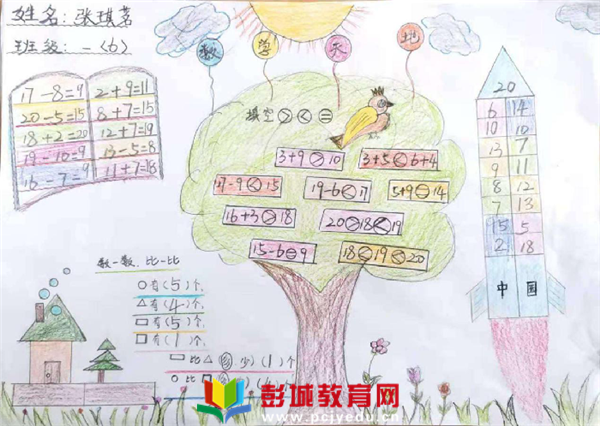 姓名：张琪茗
班级：一（6）
数学天地
17-8=9 2+9=11
20-5=15 8+7=15
18+2=20 12+7=19
19-10=9 13-5=8
16-7=9 11+7=18
填空＞＜＝
3+9＞10 3+5＜6+4
17-9＜15 19-6＜17 5+9=14
16+3＞18 20＞18＜19
15-6=9 18＜19＜20
20
6 14
10 10
13 7
9 11
8 12
7 13
15 5
2 18
中国
数一数，比一比
○有（5）个，
△有（4）个，
□有（5）个，
□有（1）个，
□比△ 少（1）个
○比□
彭城教育网
www.pcjyedu.cn